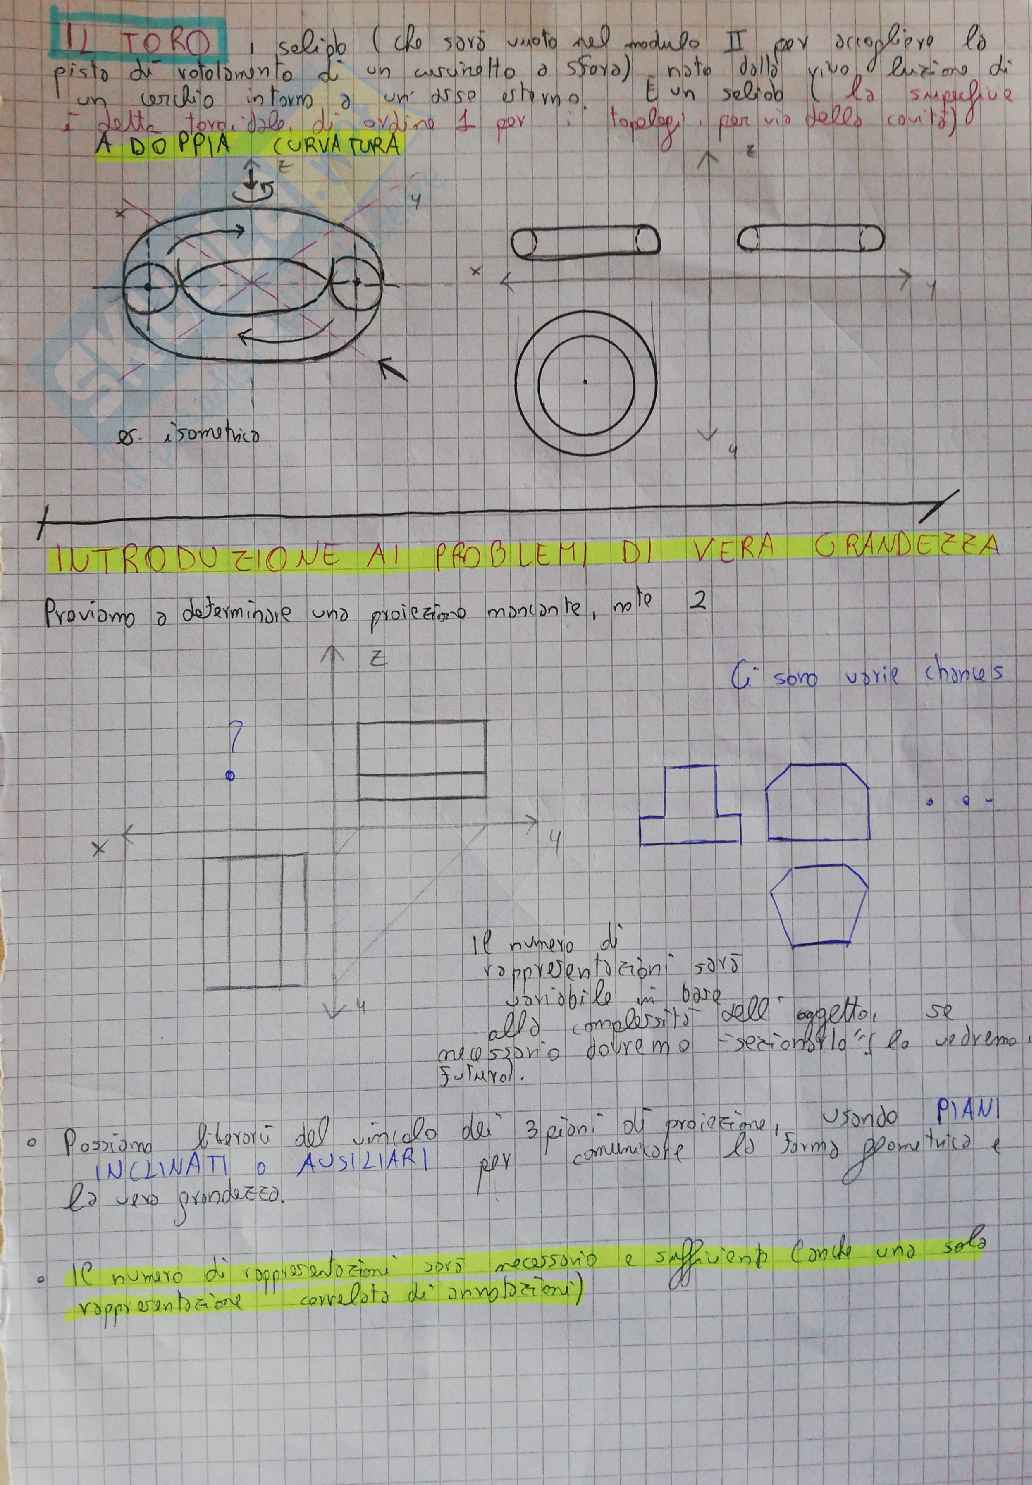 IL TORO, solido (che sarà vuoto nel modulo II per accogliere la
pista di rotolamento di un cuscinetto a sfera) nato dalla rivoluzione di
un cerchio intorno a un asse esterno. È un solido (la superficie
è detta toroidale di ordine 1 per i topologi, per via della cavità)
A DOPPIA CURVATURA
z
z
x
y
x
y
y
es. isometrica
INTRODUZIONE AI PROBLEMI DI VERA GRANDEZZA
Proviamo a determinare una proiezione mancante, note 2
z
Ci sono varie chances
?
x
y
Il numero di
rappresentazioni sarà
variabile in base
alla complessità dell'oggetto, se
necessario dovremo "sezionarlo" (lo vedremo
futuro).
y
• Possiamo liberarci del vincolo dei 3 piani di proiezione, usando PIANI
INCLINATI o AUSILIARI per comunicare la forma geometrica e
la vera grandezza.
• Il numero di rappresentazioni sarà necessario e sufficiente (anche una sola
rappresentazione correlata di annotazioni)